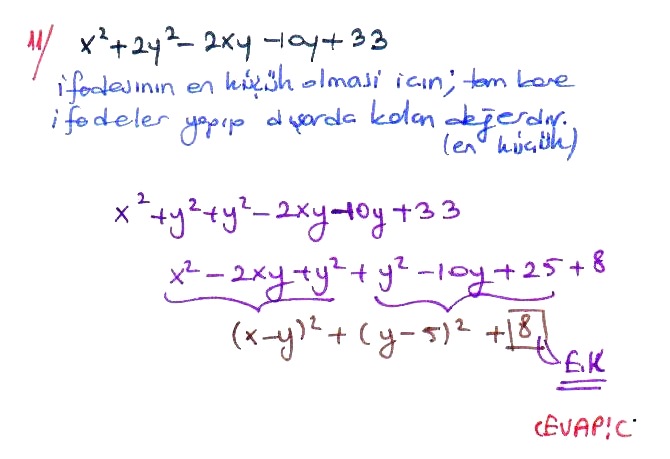 11/ x²+2y²-2xy-10y+33
ifadesinin en küçük olması için; tam kare
ifadeler yapıp dışarda kalan değerdir.
(en küçük)
x²+y²+y²-2xy-10y+33
x²-2xy+y²+y²-10y+25+8
(x-y)²+(y-5)²+8
E.K
CEVAP:C